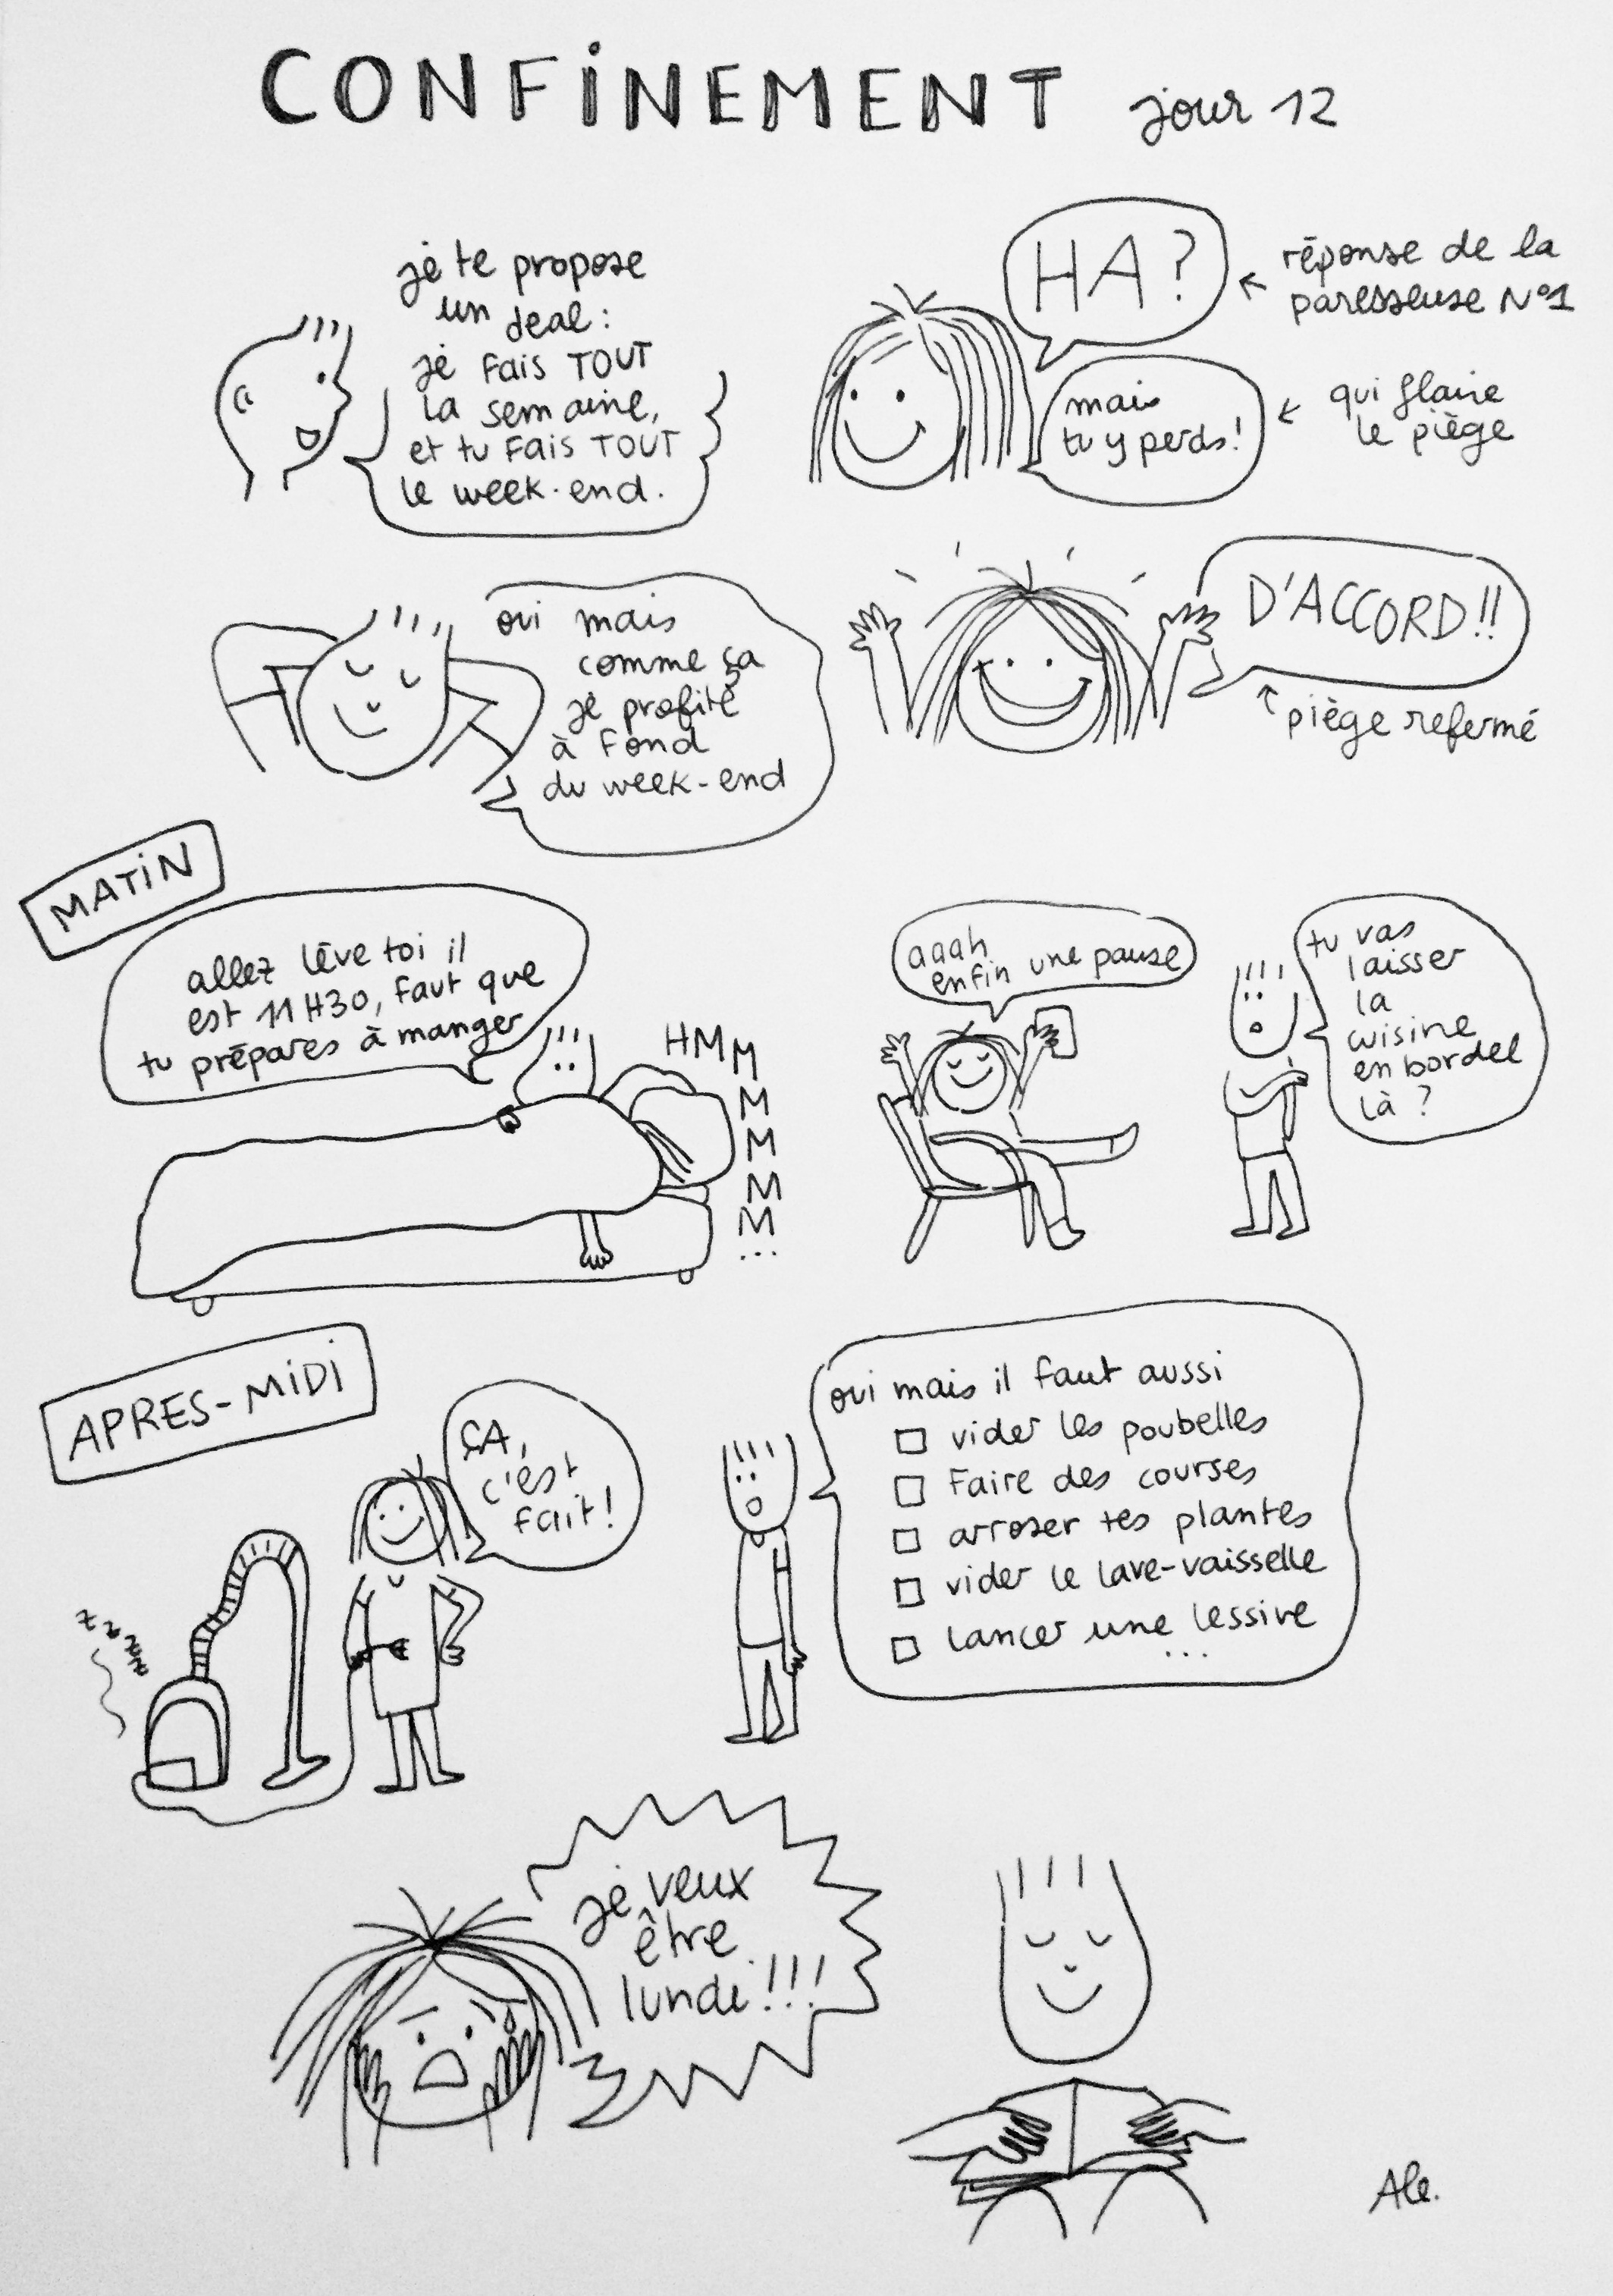 CONFINEMENT jour 12
je te propose
un deal :
je fais TOUT
la semaine,
et tu fais TOUT
le week-end.
HA ?
réponse de la
paresseuse N°1
mais
tu y perds !
qui flaire
le piège
oui mais
comme ça
je profite
à fond
du week-end
D'ACCORD !!
piège refermé
MATIN
allez lève toi il
est 11H30, faut que
tu prépares à manger
HMM
M
M
M
M
...
aaah
enfin une pause
tu vas
laisser
la
cuisine
en bordel
là ?
APRES-MIDI
ÇA,
c'est
fait !
zzzzz
oui mais il faut aussi
vider les poubelles
faire des courses
arroser tes plantes
vider le lave-vaisselle
lancer une lessive
...
je veux
être
lundi !!!
Ale.